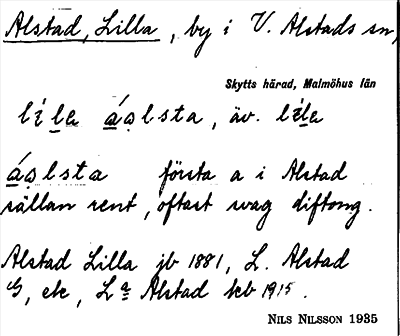 Alstad, Lilla, by i V. Alstads sn,
Skytts härad, Malmöhus län
líle áǫlsta, äv. léle
áǫlsta första a i Alstad
sällan rent, oftast svag diftong.
Alstad Lilla jb 1881, L. Alstad
G, ek, La Alstad tcb 1915.
NILS NILSSON 1935